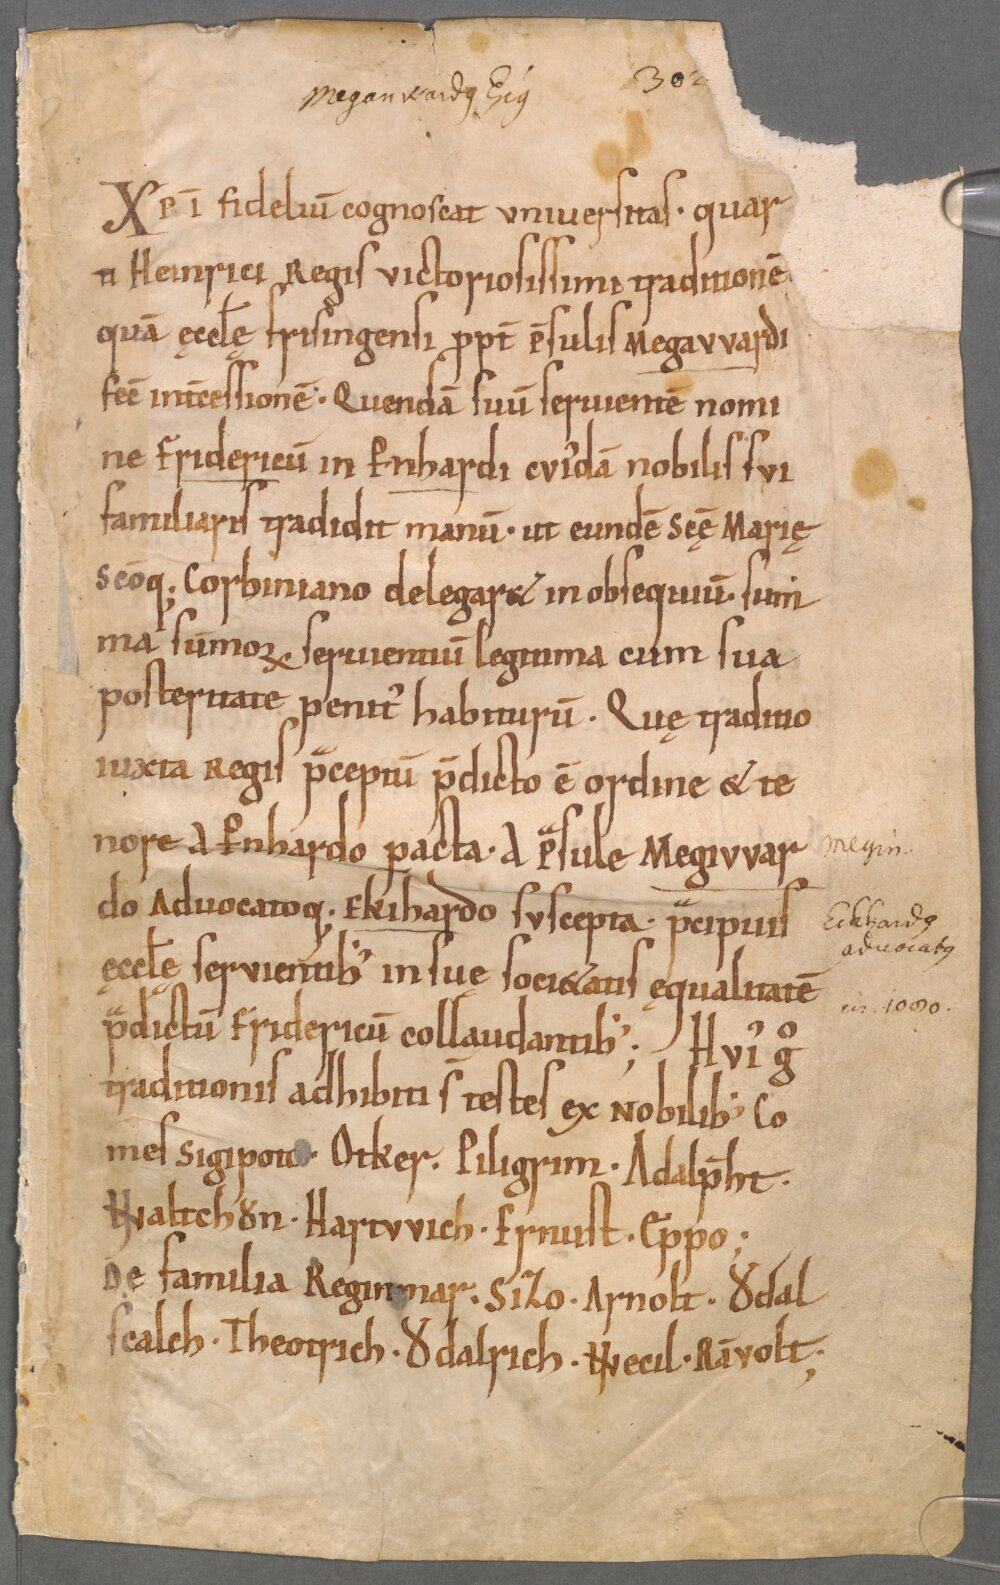 Meganwardꝰ Epꝰ 302
Xp̄i fideliū cognoscat vniuersitas· quar
n Heinrici Regis victoriosissimi traditionē
quā ęccl̄ę frisingensi ꝓpt̄ p̄sulis Megavvardi
fec̄ int̄cessionē· Quendā suū seruientē nomi
ne Fridericū in Enhardi cvi᾽dā nobilis svi
familiaris tradidit manū· ut eundē Sc̄ę Marię
Sc̄oq; Corbiniano delegar& in obsequiū sum
ma sūmoꝝ seruientiū legitima cum sua
posteritate penit᾽ habiturū· Quę traditio
iuxta Regis p̄ceptū p̄dicto ē ordine & te
nore a Enhardo pacta· a p̄sule Megivvar
do Aduocatoq; Ekihardo svscepta· p̄cipuis
ęccl̄ę servientib᾽ in suę soci&atis ęqualitatē
p̄dictū Fridericū collaudantib᾽; Hvi᾽ gͦ
traditionis adhibiti s̄ testes ex Nobilib᾽ Co
mes Sigipoto· Otker· Piligrim· Adalp̄ht·
Waltchȣn· Hartvvich· Ernust· Eppo;
De familia Reginmar· Sizo· Arnolt· Ȣdal
scalch· Theotrich· Ȣdalrich· Wecil· Rāvolt;
Megin.
Eckhardꝰ
advocatꝰ